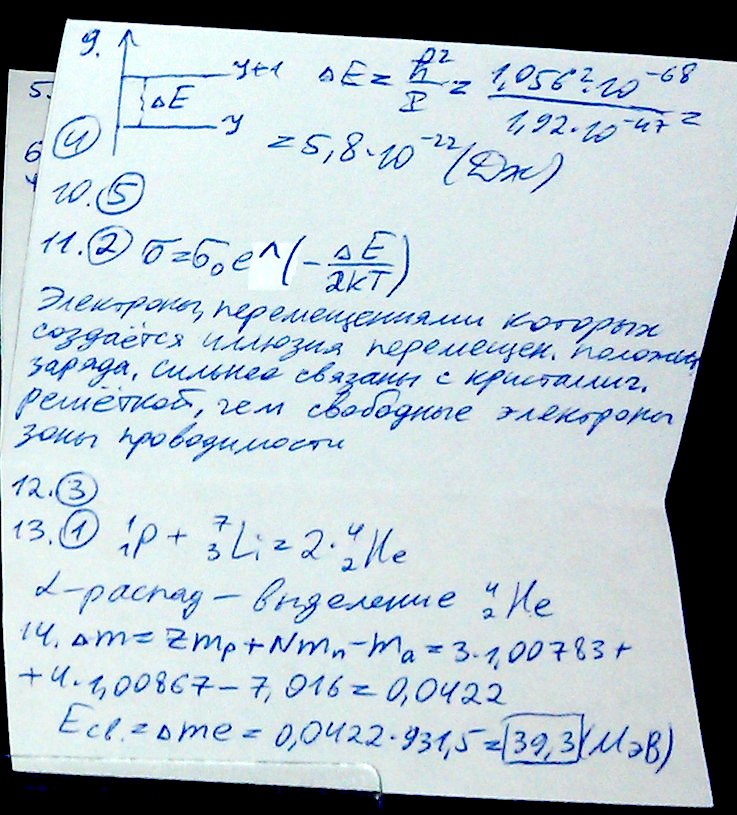 9. y+1 ΔE = ħ²/I = 1,056²·10⁻⁶⁸/1,92·10⁻⁴⁷ =
ΔE y
④ = 5,8·10⁻²² (Дж)
5.
6
10. ⑤
11. ② σ=σ₀e^(-ΔE/2kT)
Электроны, перемещениями которых
создаётся иллюзия перемещен. полож.
заряда, сильнее связаны с кристаллич.
решёткой, чем свободные электроны
зоны проводимости
12. ③
13. ① ¹₁P + ⁷₃Li = 2·⁴₂He
α-распад – выделение ⁴₂He
14. Δm = Zmₚ+Nmₙ-mₐ = 3·1,00783+
+4·1,00867-7,016=0,0422
Eсв.=Δmc=0,0422·931,5=39,3(МэВ)